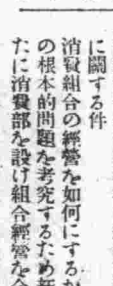 に關する件
消費組合の經營を如何にするか
の根本的問題を考究するため新
たに消費部を設け組合經營を合